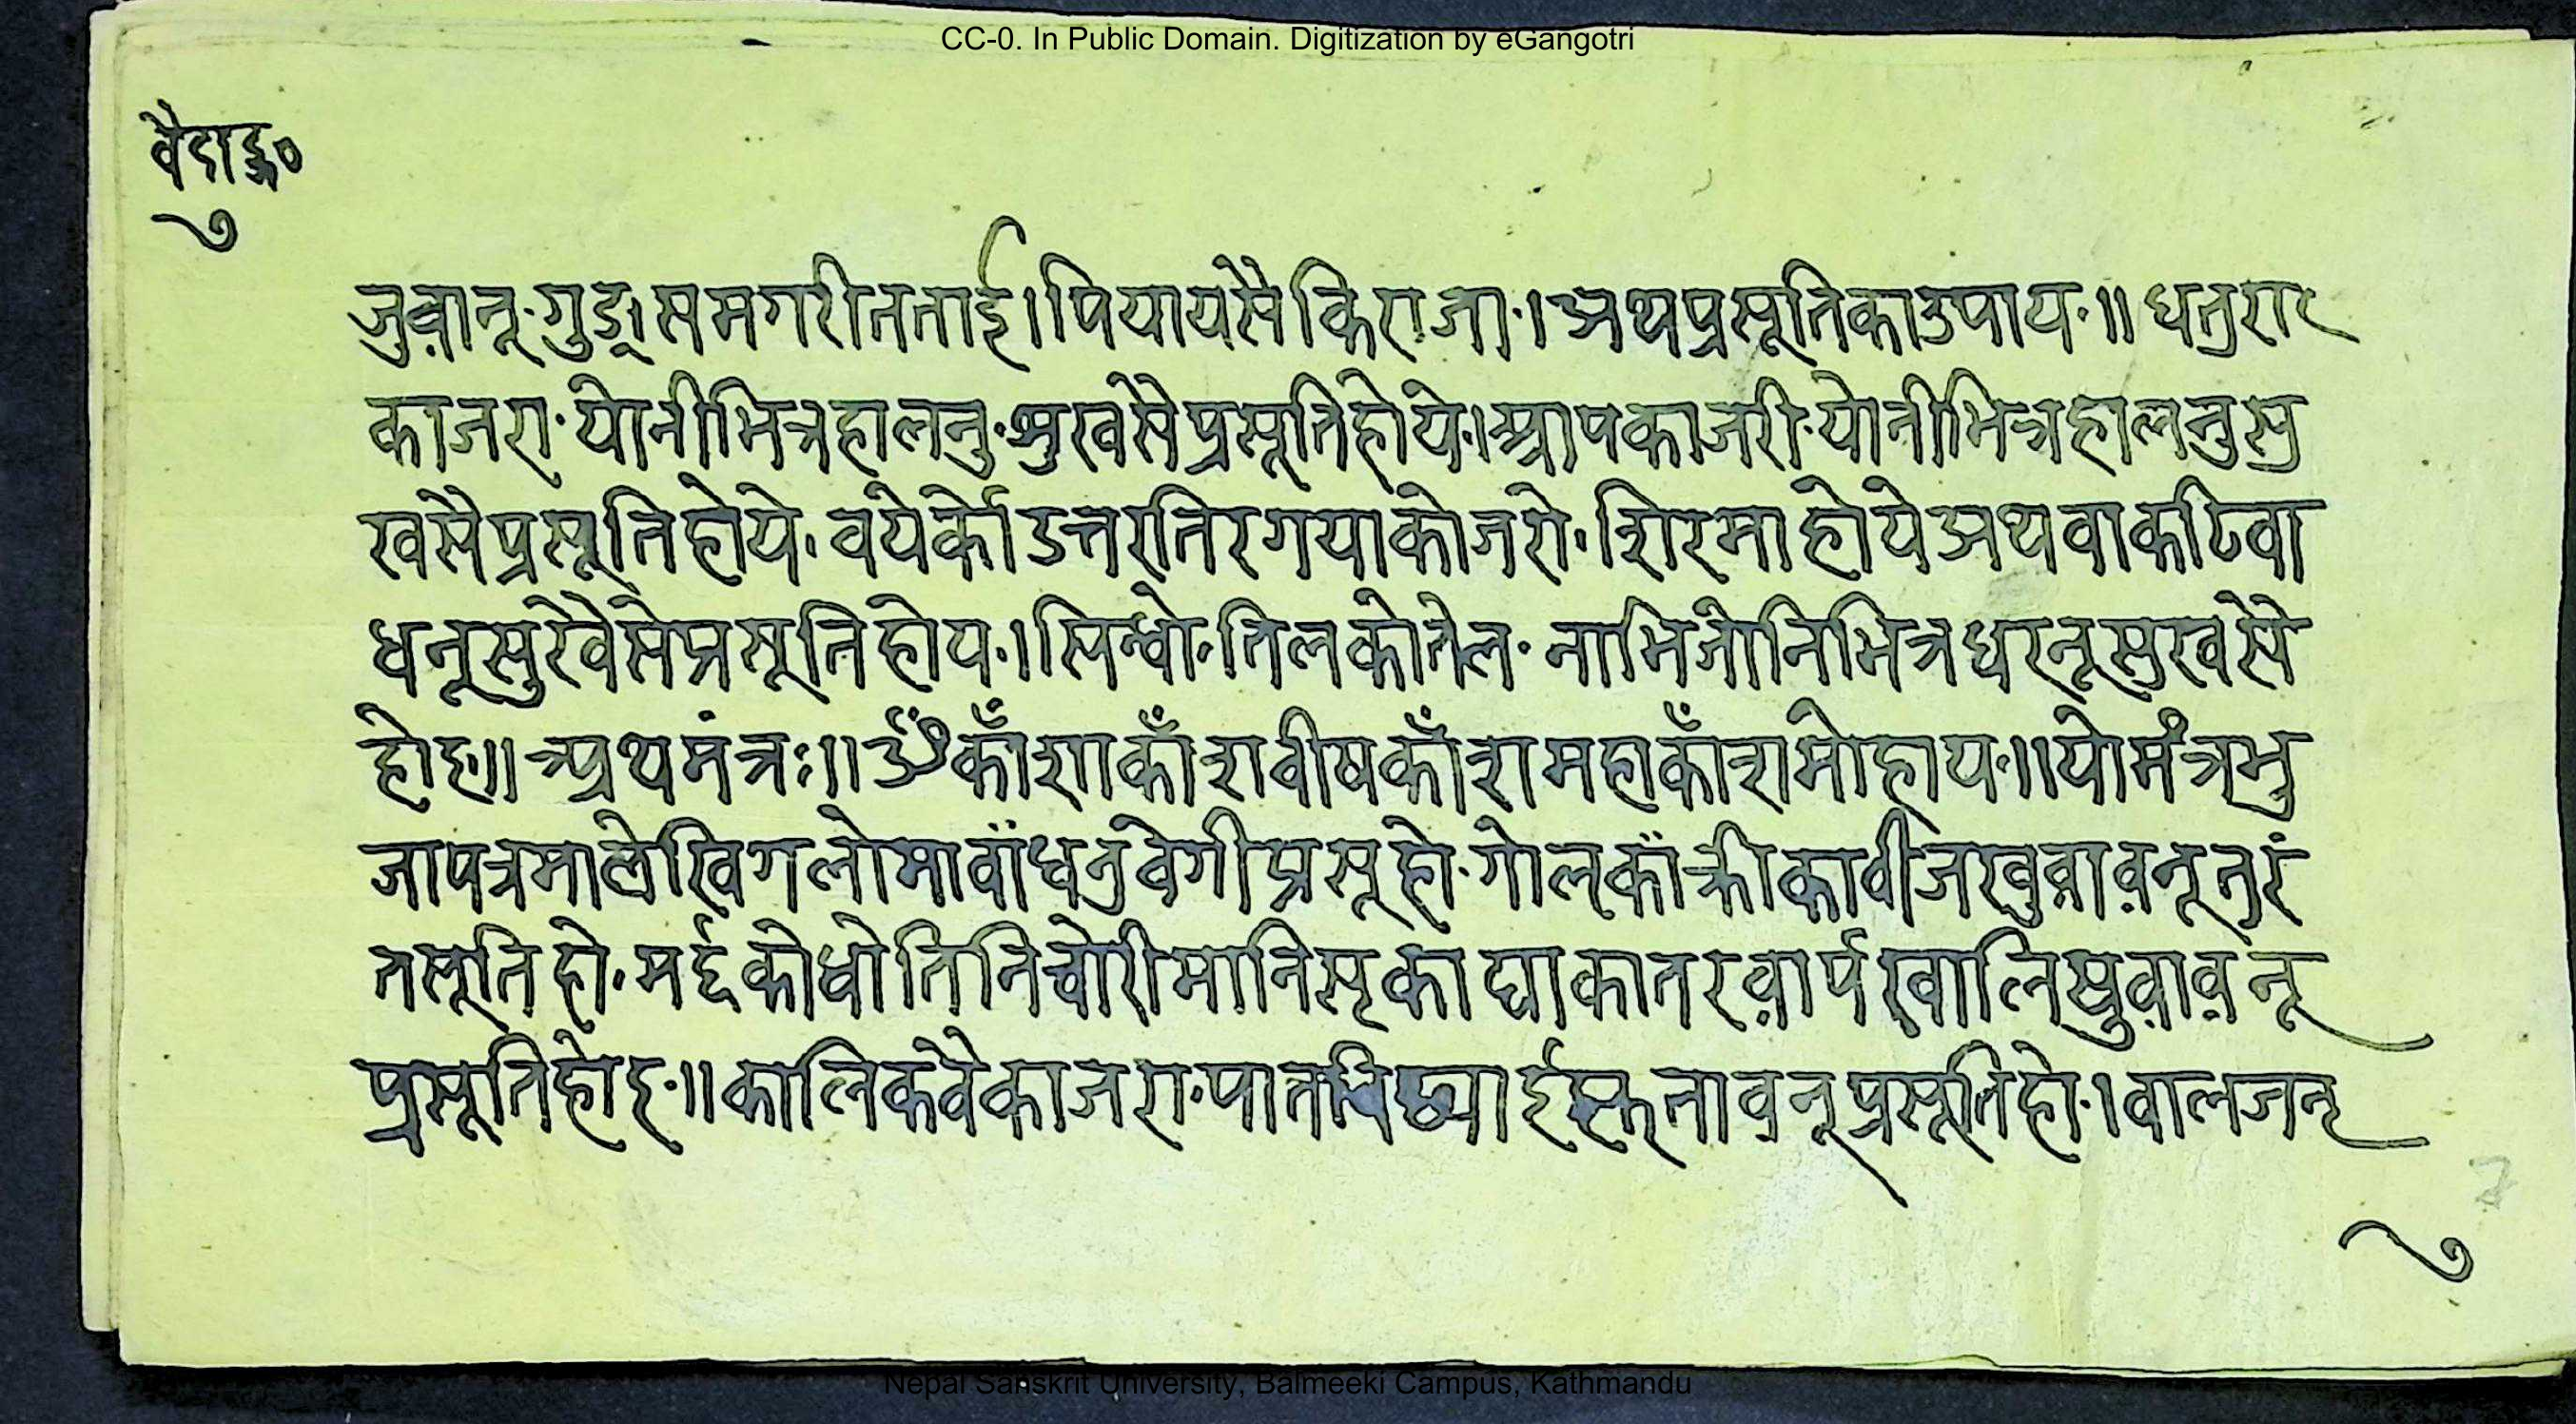 CC-0. In Public Domain. Digitization by eGangotri
वैदाङ्ग०
७
जुवानू· गुड् समगरी तताई । पियायसैकिराजा· । अथप्रसूतिकाउपाय· ॥ धतुरा
काजरा· योनीभित्रहालनु· सुखसैप्रसूतिहोये· । आपकाजरी· योनीभित्रहालनुसु
खसैप्रसूतिहोये· वयेर्कोउत्तरतिरगयाकोजरो· शिरमाहोये अथवाकटिवा
धनूसुखेसेप्रसूतिहोय· । सिन्धो· तिलकोतेल· नाभिजोनिभित्रधरनूसुखसे
होइ ॥ अथमंत्रः ॥ ॐकाँशाकाँशावीषकाँशामहाकाँशामोहाय· ॥ योमंत्रभु
जापत्रमालेखिगलोमावाँधनुवेगीप्रसूहो· गोलकाँक्रीकावीजखुवावनूतुरं
तसूतिहो· मर्द्दकोधोतिनिचोरीमानिसृकाघाकातरवार्पखालिखुवावनू
प्रसूतिहोइ· ॥ कालिकवैकाजरा· पात
नावनूप्रसूतिहो· । वालजनृ
७
7
Nepal Sanskrit University, Balmeeki Campus, Kathmandu